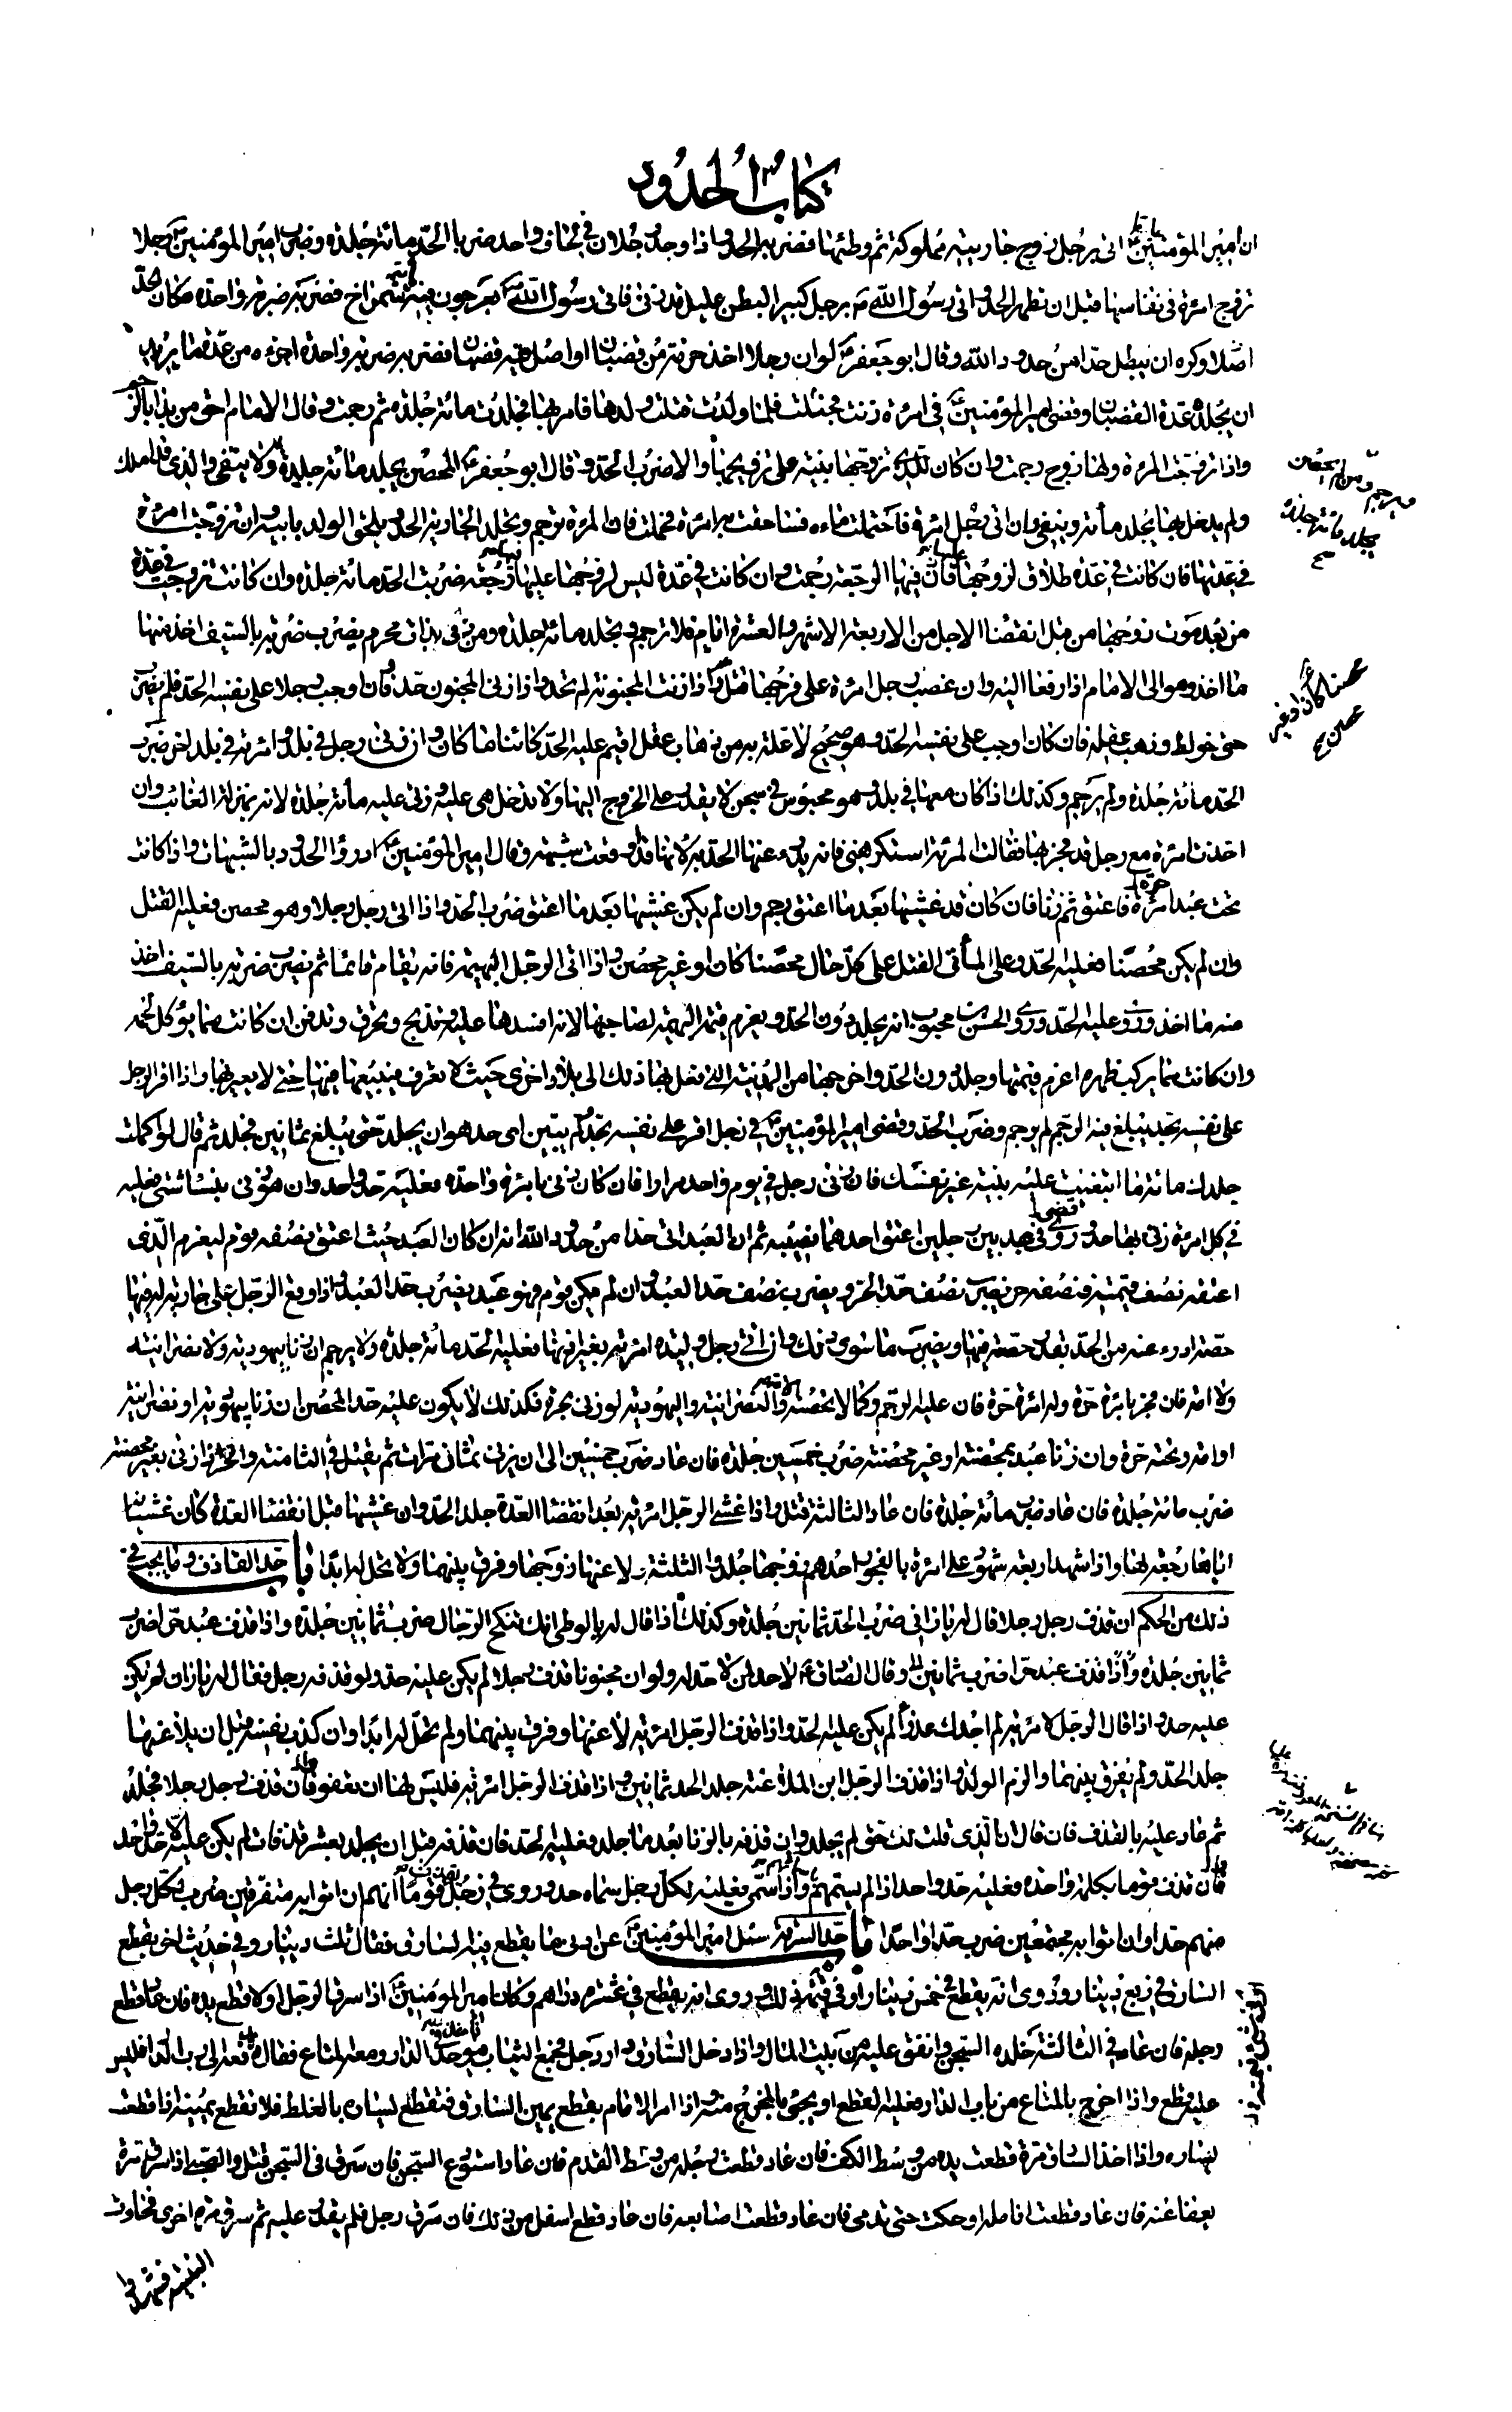 كتاب الحدود
ان امير المؤمنين اتي برجل زوج جاريته مملوكه ثم وطئها فضربه الحد واذا وجد رجلان في لحاف واحد ضربا الحد مائة جلدة وضرب امير المؤمنين رجلا
تزوج امرءة في نفاسها قبل ان تطهر الحد واتى رسول الله برجل كبير البطن عليل قد زنى فاتى رسول الله بعرجون فيه شمراخ فضربه ضربة واحدة مكان الحد
اصلا وكره ان يبطل حدا من حدود الله وقال ابو جعفر لو ان رجلا اخذ حزمة من قضبان او اصلا فيه قضبان فضربه ضربة واحدة اجزءه من عدة ما يريد
ان يجلد عدة القضبان وقضى امير المؤمنين في امرءة زنت فحبلت فلما ولدت قتلت ولدها فامر بها فجلدت مائة جلدة ثم رجمت وقال الامام احق من بدا بالرجم
واذا تزوجت المرءة ولها زوج رجمت وان كان للذي تزوجها بينة على تزويجها والا ضرب الحد وقال ابو جعفر المحصن يجلد مائة جلدة ولا ينفى والذي قد املك
ولم يدخل بها يجلد مائة وينفى وان اتى رجل امرءة فاحتملت ماءه فساحقت به امرءة فحملت فان المرءة ترجم وتجلد الجارية الحد ويلحق الولد بابيه وان تزوجت امرءة
في عدتها فان كانت في عدة طلاق لزوجها عليها فيها الرجعة رجمت وان كانت في عدة ليس لزوجها عليها فيها رجعة ضربت الحد مائة جلدة وان كانت تزوجت في عدة
من بعد موت زوجها من قبل انقضاء الاجل من الاربعة الاشهر والعشرة ايام فلا ترجم وتجلد مائة جلدة ومن زنى بذات محرم يضرب ضربة بالسيف اخذ منها
ما اخذ وهو الى الامام اذا رفعا اليه وان غصب رجل امرءة على فرجها قتل واذا زنت المجنونة لم تحد واذا زنى المجنون حد فان اوجب رجلا على نفسه الحد فلم يضرب
حتى خولط وذهب عقله فان كان اوجب على نفسه الحد وهو صحيح لا علة به من ذهاب عقل اقيم عليه الحد كائنا ما كان وان زنى رجل في بلد وامرءته في بلد اخر ضرب
الحد مائة جلدة ولم يرجم وكذلك اذا كان معها في بلد وهو محبوس في سجن لا يقدر على الخروج اليها ولا تدخل هي عليه وزنى عليه مائة جلدة لانه بمنزلة الغائب وان
اخذت امرءة مع رجل قد فجر بها فقالت المرءة استكرهني فانه يدرء عنها الحد به لانها قد وقعت شبهة وقال امير المؤمنين ادرؤا الحدود بالشبهات واذا كانت
تحت عبد امرءة حرة فاعتق ثم زنا فان كان قد غشيها بعد ما اعتق رجم وان لم يكن غشيها بعد ما اعتق ضرب الحد واذا اتى رجل رجلا وهو محصن فعليه القتل
وان لم يكن محصنا فعليه الحد وعلى المأتى القتل على كل حال محصنا كان او غير محصن واذا اتى الرجل البهيمة فانه يقام قائما ثم يضرب ضربة بالسيف اخذ
منه ما اخذ وروي عليه الحد وروى الحسن بن محبوب انه يجلد دون الحد ويغرم قيمة البهيمة لصاحبها لانه افسدها عليه وتذبح وتحرق وتدفن ان كانت مما يؤكل لحمه
وان كانت مما يركب ظهره اغرم قيمتها وجلد دون الحد واخرجها من المدينة التي فعل بها ذلك الى بلاد اخرى حيث لا تعرف فيبيعها فيها حتى لا يعير بها واذا اقر الرجل
على نفسه بحد يبلغ فيه الرجم لم يرجم وضرب الحد وقضى امير المؤمنين في رجل اقر على نفسه بحد لم يبين اي حد هو ان يجلد حتى يبلغ ثمانين فجلد ثم قال لو اكملت
جلدك مائة ما ابتغيت عليه بينة غير نفسك فان زنى رجل في يوم واحد مرارا فان كان زنى بامرءة واحدة فعليه حد واحد وان هو زنى بنساء شتى فعليه
في كل امرءة زنى بها حد وروي قضى في عبد بين رجلين اعتق احدهما نصيبه ثم ان العبد اتى حدا من حدود الله انه ان كان العبد حيث اعتق نصفه قوم ليغرم الذي
اعتقه نصف قيمته فنصفه حر يضرب نصف حد الحر ويضرب نصف حد العبد وان لم يكن قوم فهو عبد يضرب حد العبد واذا وقع الرجل على جارية له فيها
حصة ادرء عنه من الحد بقدر حصته فيها ويضرب ما سوى ذلك وان اتى رجل وليدة امرءته بغير اذنها فعليه الحد مائة جلدة ولا يرجم ان زنا بيهودية ولا نصرانية
ولا امة فان فجر بامرءة حرة وله امرءة حرة فان عليه الرجم وكما لا تحصنه الامة والنصرانية واليهودية لو زنى بحرة فكذلك لا يكون عليه حد المحصن ان زنا بيهودية او نصرانية
او امة وتحته حرة وان زنا عبد بمحصنة او غير محصنة ضرب خمسين جلدة فان عاد ضرب خمسين الى ان يزني ثماني مرات ثم يقتل في الثامنة والحر اذا زنى بغير محصنة
ضرب مائة جلدة فان عاد ضرب مائة جلدة فان عاد الثالثة قتل واذا غشي الرجل امرءته بعد انقضاء العدة جلد الحد وان غشيها قبل انقضاء العدة كان غشيانه
اياها رجعة لها واذا شهد اربعة شهود على امرءة بالفجور احدهم زوجها جلدوا الثلثة ولاعنها زوجها وفرق بينهما ولا تحل له ابدا باب حد القاذف وما يجب في
ذلك من الحكم ان قذف رجل رجلا فقال له يا زاني ضرب الحد ثمانين جلدة وكذلك اذا قال له يا لوطي انك تنكح الرجال ضرب ثمانين جلدة واذا قذف عبد حرا ضرب
ثمانين جلدة واذا قذف عبد حرا ضرب ثمانين وقال الصادق لا حد لمن لا حد له ولو ان مجنونا قذف رجلا لم يكن عليه حد ولو قذفه رجل فقال له يا زان لم يكن
عليه حد واذا قال الرجل لامرءته لم اجدك عذراء لم يكن عليه الحد واذا قذف الرجل امرءته لاعنها وفرق بينهما ولم تحل له ابدا وان كذب نفسه قبل ان يلاعنها
جلد الحد ولم يفرق بينهما والزم الولد واذا قذف الرجل ابن الملاعنة جلد الحد ثمانين واذا قذف الرجل امرءته فليس لها ان تعفو فان قذف رجل رجلا فجلد
ثم عاد عليه بالقذف فان قال ان الذي قلت لك حق لم يجلد وان قذفه بالزنا بعد ما جلد فعليه الحد فان قذفه قبل ان يجلد بعشر قذفات لم يكن عليه الا حد واحد
فان قذف قوما بكلمة واحدة فعليه حد واحد اذا لم يسمهم واذا سمى فعليه لكل رجل سماه حد وروي في رجل يقذف قوما انهم ان اتوا به متفرقين ضرب لكل رجل
منهم حدا وان اتوا به مجتمعين ضرب حدا واحدا باب حد السرقة سئل امير المؤمنين عن ادنى ما يقطع فيه السارق فقال ثلث دينار وفي حديث اخر يقطع
السارق في ربع دينار وروي انه يقطع في خمس دينار او في قيمة ذلك وروي انه يقطع في عشرة دراهم وكان امير المؤمنين اذا سرق الرجل اولا قطع يده فان عاد قطع
رجله فان عاد في الثالثة خلده السجن وانفق عليه من بيت المال واذا دخل السارق دار رجل فجمع الثياب فيؤخذ في الدار ومعه المتاع فقال دفعه الي رب الدار فليس
عليه قطع واذا اخرج بالمتاع من باب الدار فعليه القطع او يجيئ بالمخرج منه واذا امر الامام بقطع يمين السارق فتقطع يساره بالغلط فلا تقطع يمينه اذا قطعت
يساره واذا اخذ السارق مرة قطعت يده من وسط الكف فان عاد قطعت رجله من وسط القدم فان عاد استودع السجن فان سرق في السجن قتل والصبي اذا سرق مرة
يعفا عنه فان عاد قطعت انامله او حكت حتى تدمى فان عاد قطعت اصابعه فان عاد قطع اسفل من ذلك فان سرق رجل فلم يقدر عليه ثم سرق مرة اخرى فجاءت
البينة فشهدوا
ويرجم ومن لم يحصن
يجلد مائة جلدة
صح
محصنا كان او غير
محصن